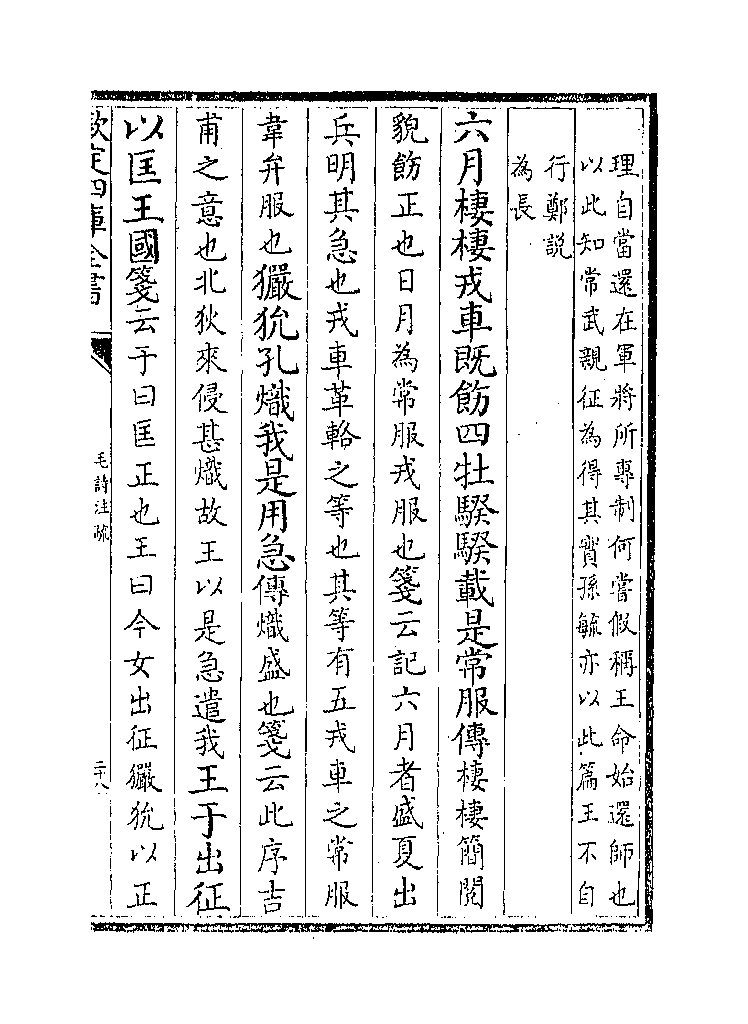 理自當還在軍將所專制何嘗假稱王命始還師也
以此知常武親征為得其實孫毓亦以此篇王不自
行鄭説
為長
六月棲棲戎車既飭四牡騤騤載是常服傳棲棲簡閲
貌飭正也日月為常服戎服也箋云記六月者盛夏出
兵明其急也戎車革輅之等也其等有五戎車之常服
韋弁服也玁狁孔熾我是用急傳熾盛也箋云此序吉
甫之意也北狄來侵甚熾故王以是急遣我王于出征
以匡王國箋云于曰匡正也王曰今女出征玁狁以正
欽定四庫全書
毛詩注疏
二十八